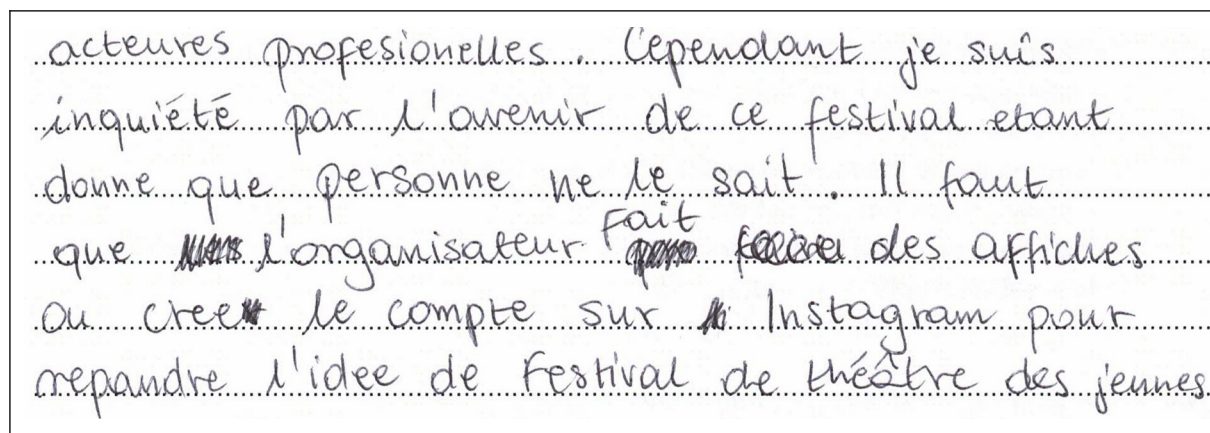 acteures profesionelles. Cependant je suis
inquiété par l'avenir de ce festival etant
donne que personne ne le sait. Il faut
que l'organisateur fait des affiches
ou cree le compte sur Instagram pour
repandre l'idee de festival de théâtre des jeunes